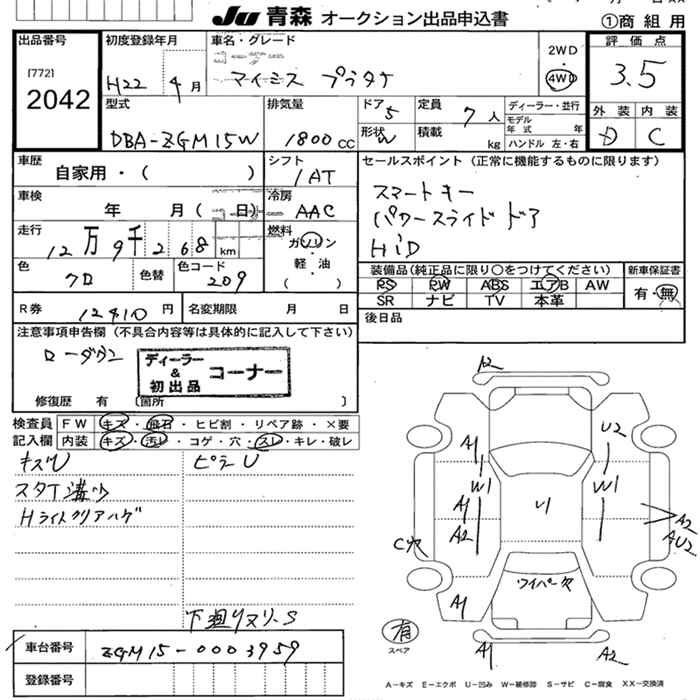 Ju 青森 オークション出品申込書
①商組用
出品番号
[772]
2042
初度登録年月
H22 年 4 月
車名・グレード
マイミス プラタナ
2WD
4WD
評価点
3.5
外装 内装
D C
型式
DBA-ZGM15W
排気量
1800 CC
ドア 5
形状 W
定員 7 人
積載 kg
ディーラー・並行
モデル年式 年
ハンドル 左・右
車歴
自家用・( )
シフト
1AT
車検
年 月( 日)
冷房
AAC
走行
12万9千268 km
燃料
ガソリン
軽・油
( )
色
クロ
色替
色コード
209
R券 12410 円
名変期限 月 日
セールスポイント(正常に機能するものに限ります)
スマートキー
パワースライドドア
HiD
装備品(純正品に限り○をつけてください)
PS PW ABS エアB AW
SR ナビ TV 本革
新車保証書
有・無
後日品
注意事項申告欄(不具合内容等は具体的に記入して下さい)
ローダウン
ディーラー & 初出品 コーナー
修復歴 有 〔箇所 〕
検査員記入欄
FW キズ・飛石・ヒビ割・リペア跡・×要
内装 キズ・汚レ・コゲ・穴・スレ・キレ・破レ
キズU
ピラーU
スタT溝少
Hライトクリアハゲ
下廻リヌリ.S
車台番号 ZGM15-0003959
登録番号
A2
A1
U2
W1
W1
A1
A2
U1
A2
AU2
Cケ
ワイパー欠
A1
有
スペア
A1
A2
A-キズ E-エクボ U-凹み W-補修跡 S-サビ C-腐食 XX-交換済